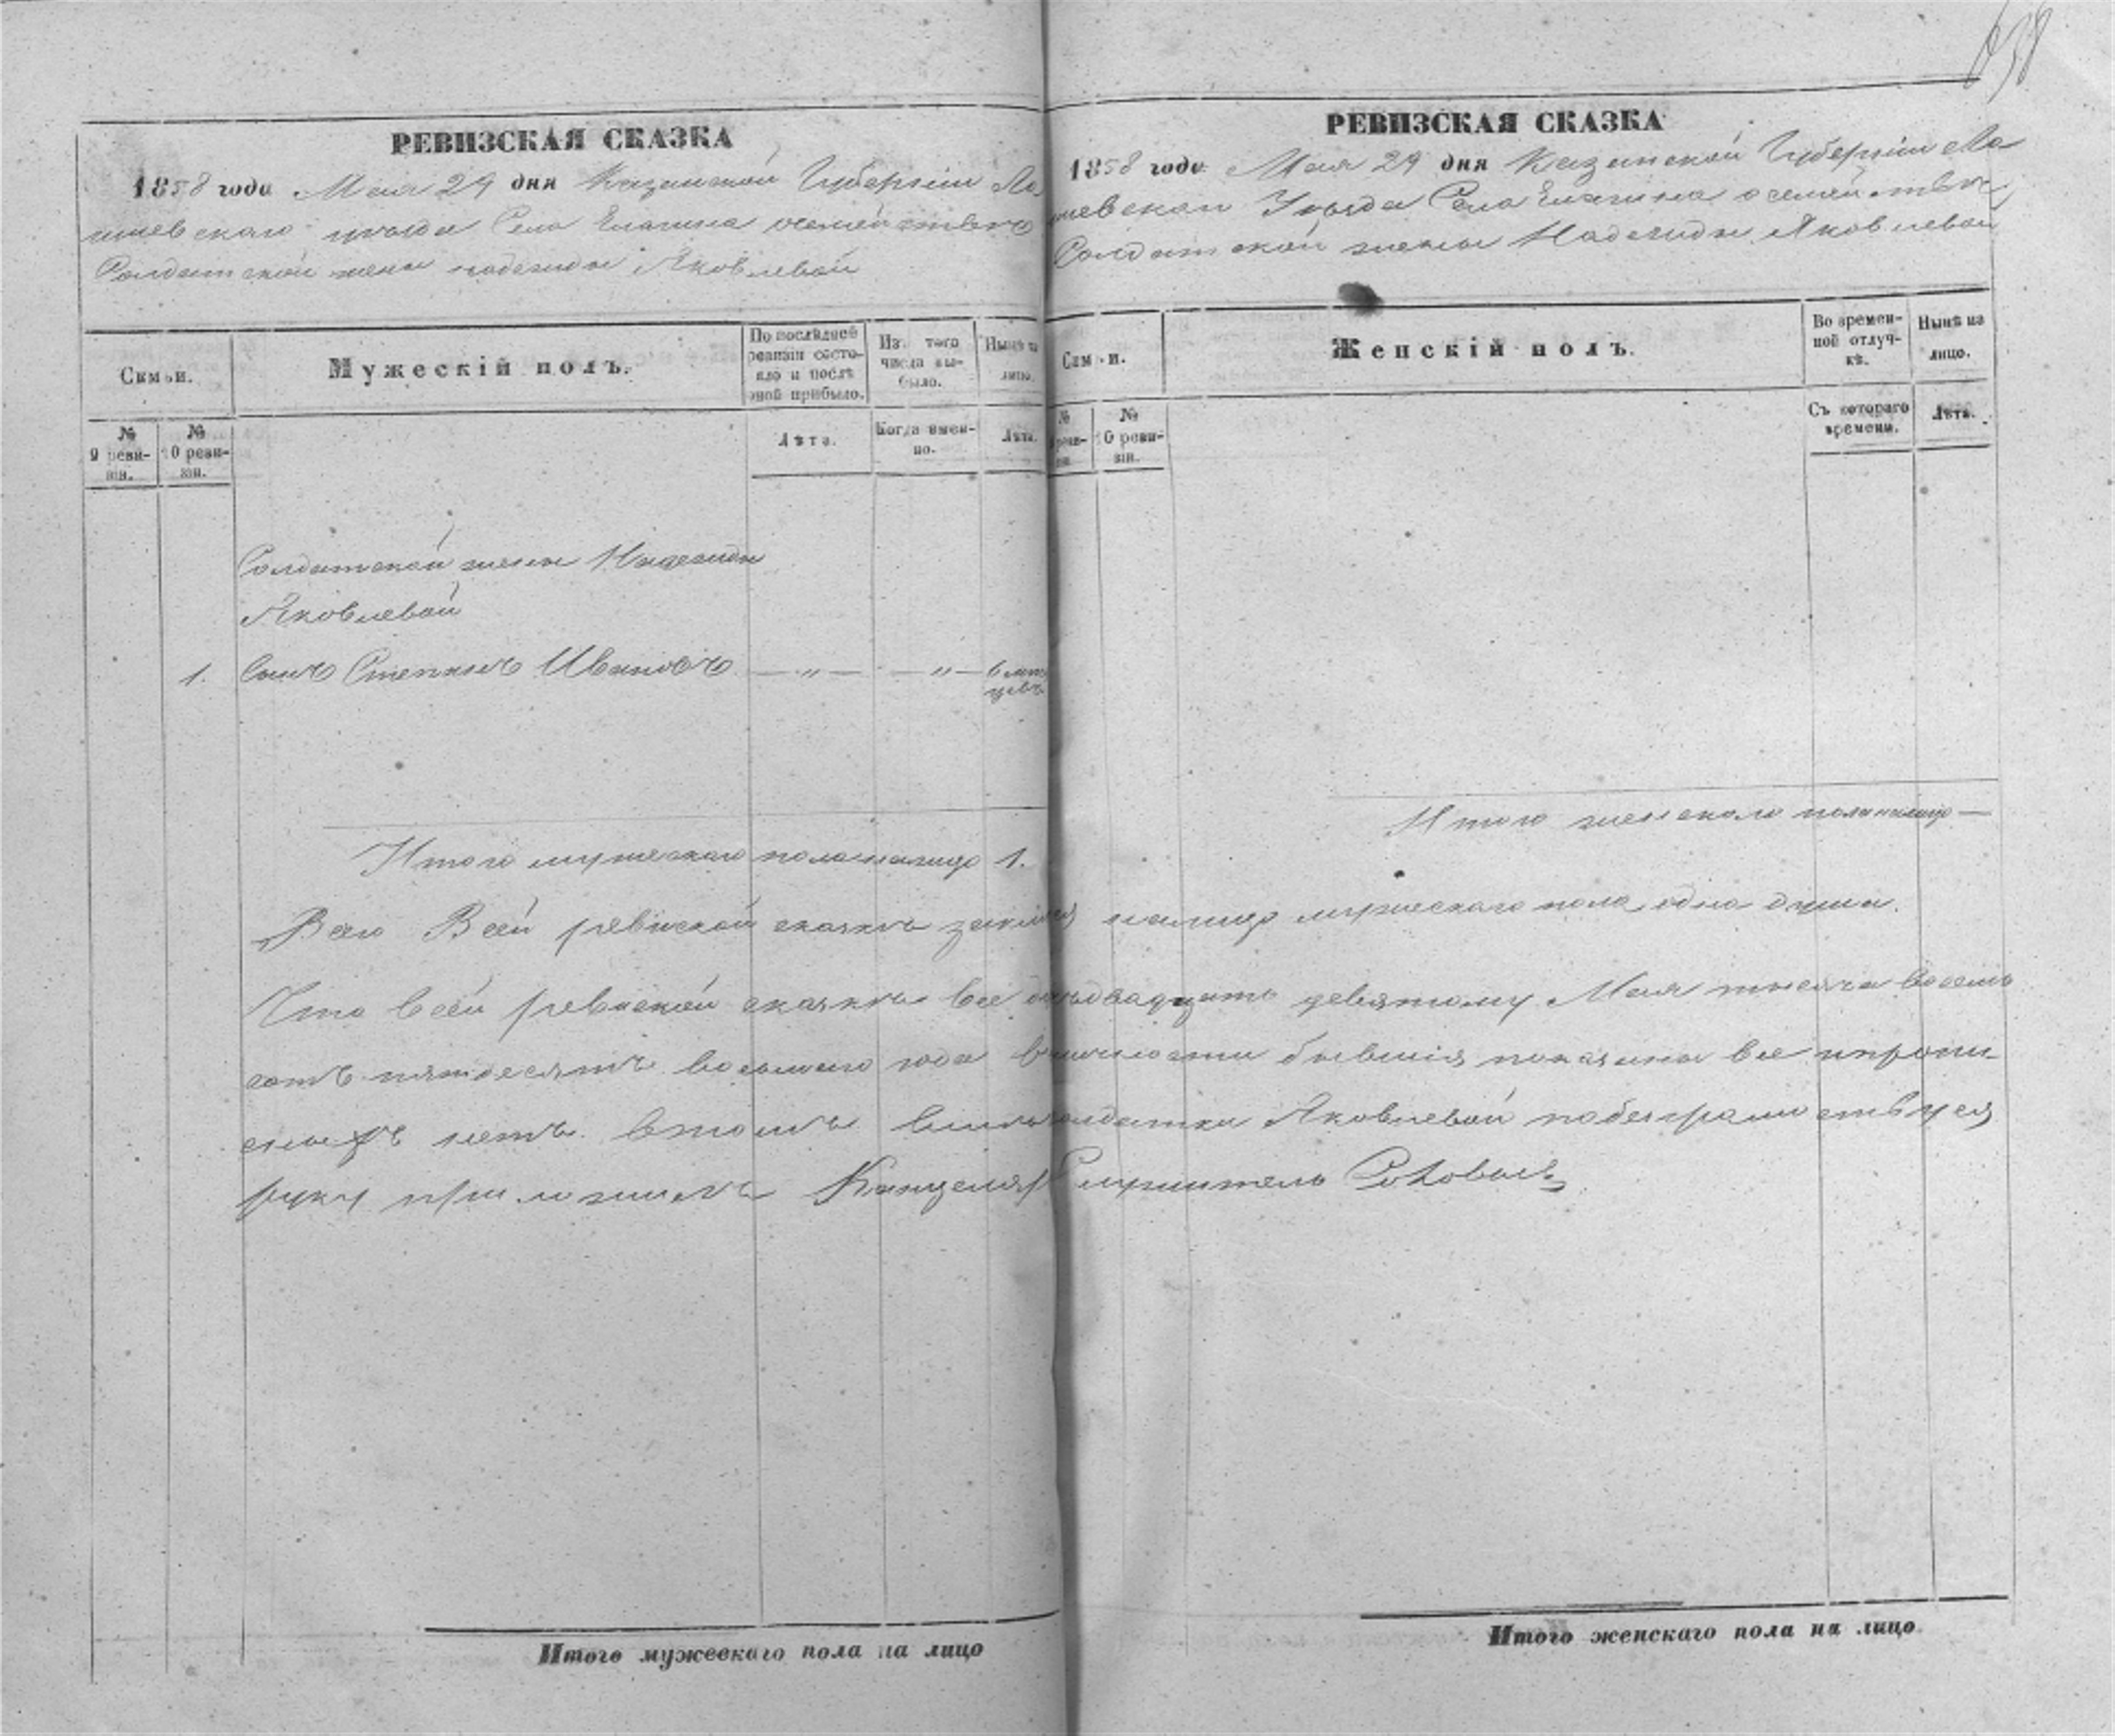 658
РЕВИЗСКАЯ СКАЗКА
1858 года Мая 29 дня Казанской Губерніи Ла
ишевскаго уезда Села Елагина о семействе
Солдатской жены надежды Яковлевой
Семьи.
Мужескій полъ.
По послѣдней ревизіи состояло и послѣ оной прибыло.
Изъ того числа выбыло.
Нынѣ на лицо.
№ 9 ревизіи.
№ 10 ревизіи.
Лѣта.
Когда именно.
Лѣта.
Солдатской жены Надежды
Яковлевой
1. Сынъ Степанъ Ивановъ — „ — — „ — 6 мѣсяцевъ
Итого мужескаго пола налицо 1.
РЕВИЗСКАЯ СКАЗКА
1858 года Мая 29 дня Казанской Губерніи Ла
ишевскаго Уезда Села Елагина о семействе
Солдатской жены Надежды Яковлевой
Семьи.
Женскій полъ.
Во временной отлучкѣ.
Нынѣ на лицо.
№ 9 ревизіи.
№ 10 ревизіи.
Съ котораго времени.
Лѣта.
Итого женскаго пола налицо —
Всего Всей ревиской сказкѣ налицо мужескаго пола одна душа.
Что всей ревиской сказкѣ все двадцать девятому Мая тысяча восемь
сотъ пятдесятъ восьмаго года бывшія показаны все и пропи
сныхъ нетъ втомъ Яковлевой
руку приложилъ Канцеляр Служитель
Итого мужескаго пола на лицо
Итого женскаго пола на лицо